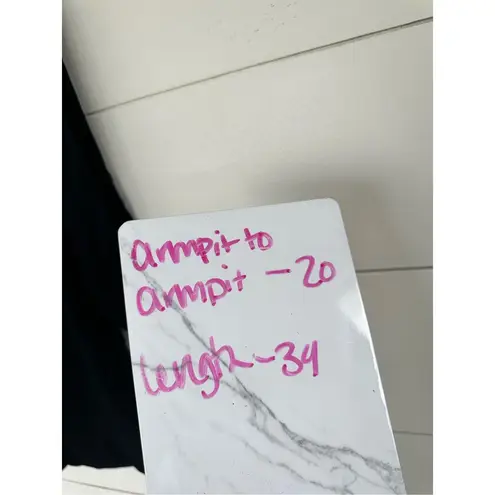 armpit to
armpit - 20
lengh - 34